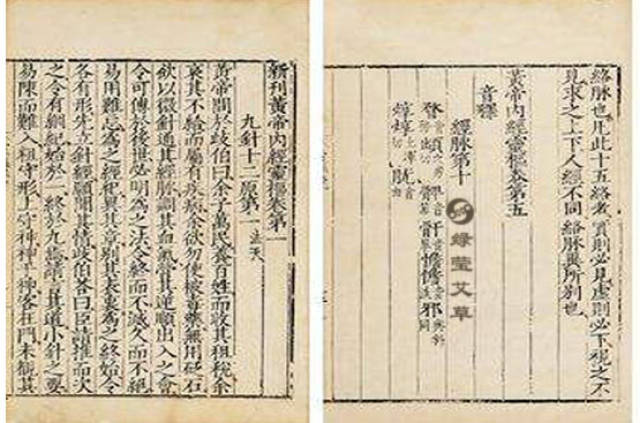 新刊黃帝內經靈樞卷第一
九針十二原第一 法天
黃帝問於歧伯曰余子萬民養百姓而收其租稅余
哀其不給而屬有疾病余欲勿使被毒藥無用砭石
欲以微針通其經脉調其血氣營其逆順出入之會
令可傳於後世必明為之法令終而不滅久而不絕
易用難忘為之經紀異其章別其表裏為之終始令
各有形先立針經願聞其情歧伯荅曰臣請推而次
之令有綱紀始於一終於九焉請言其道小針之要
易陳而難入粗守形上守神神乎神客在門未覩其
絡脉也凡此十五絡者實則必見虛則必下視之不
見求之上下人經不同絡脉異所別也
黃帝內經靈樞卷第五
音釋
經脉第十
綠瑩艾草